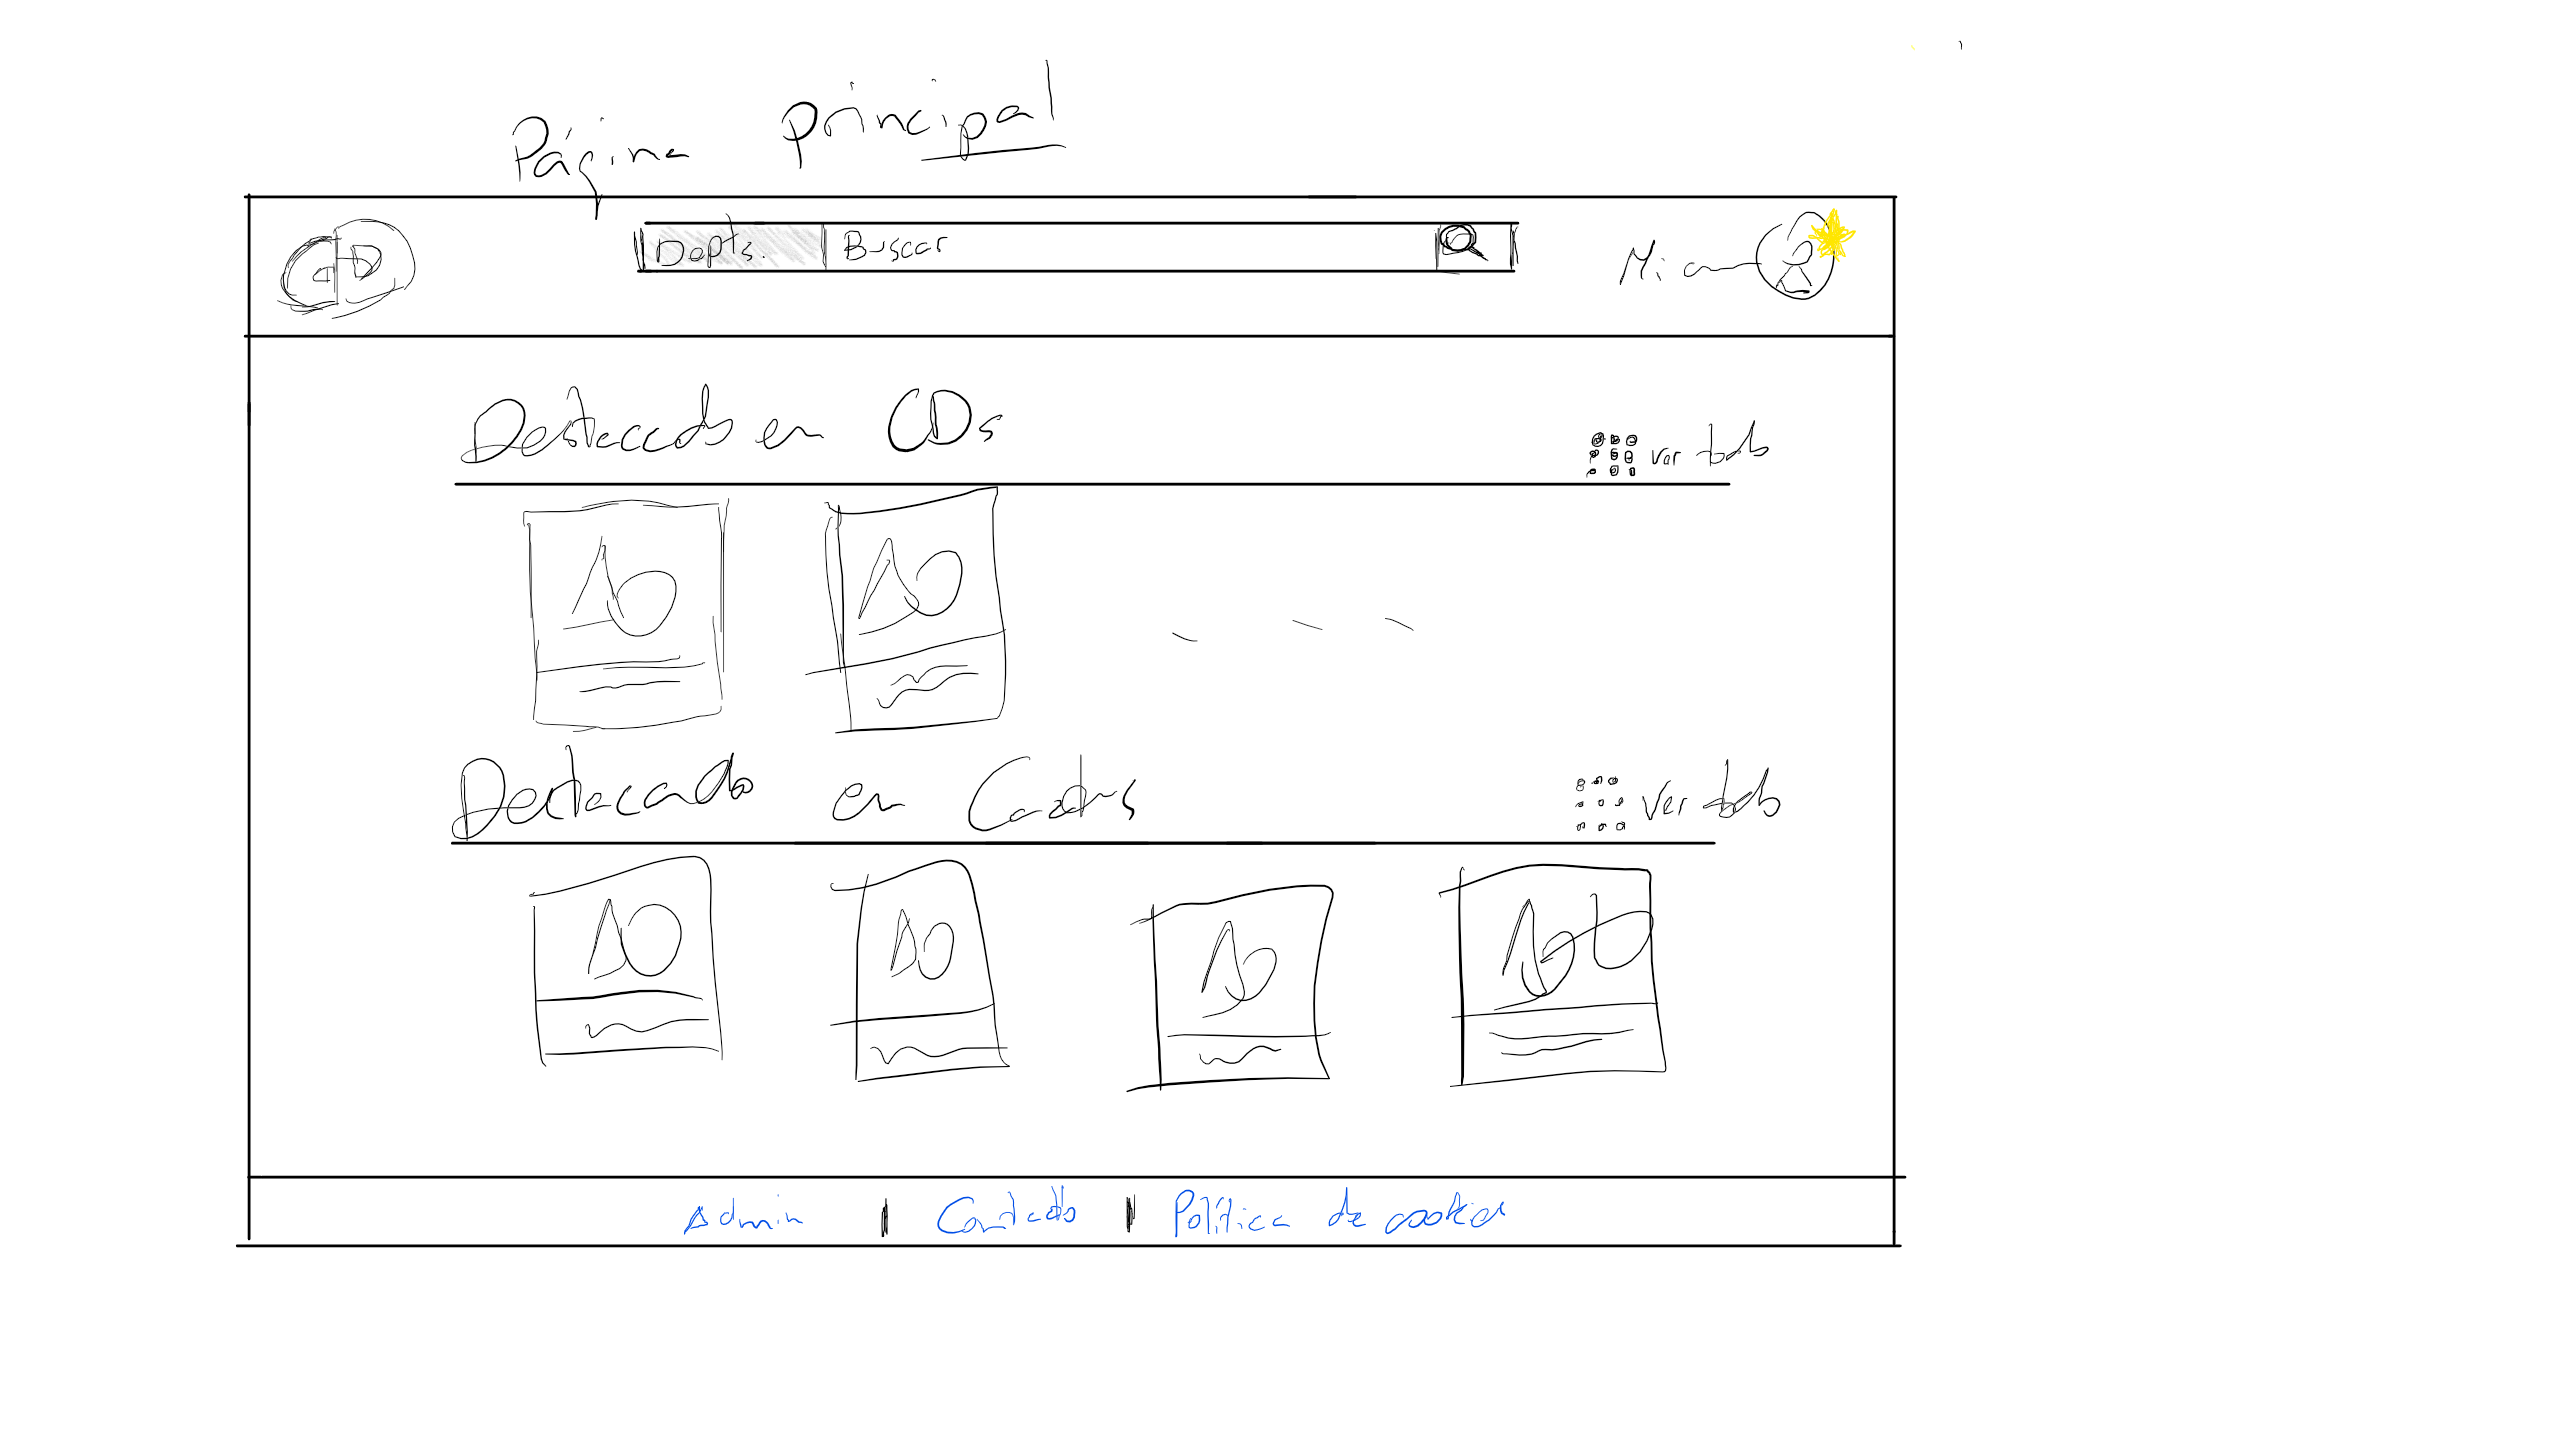 Página principal
CD
Depts. Buscar
Mi
Destacado en CDs
Ver todo
Destacado en
Ver todo
Admin | Contacto | Política de cookies